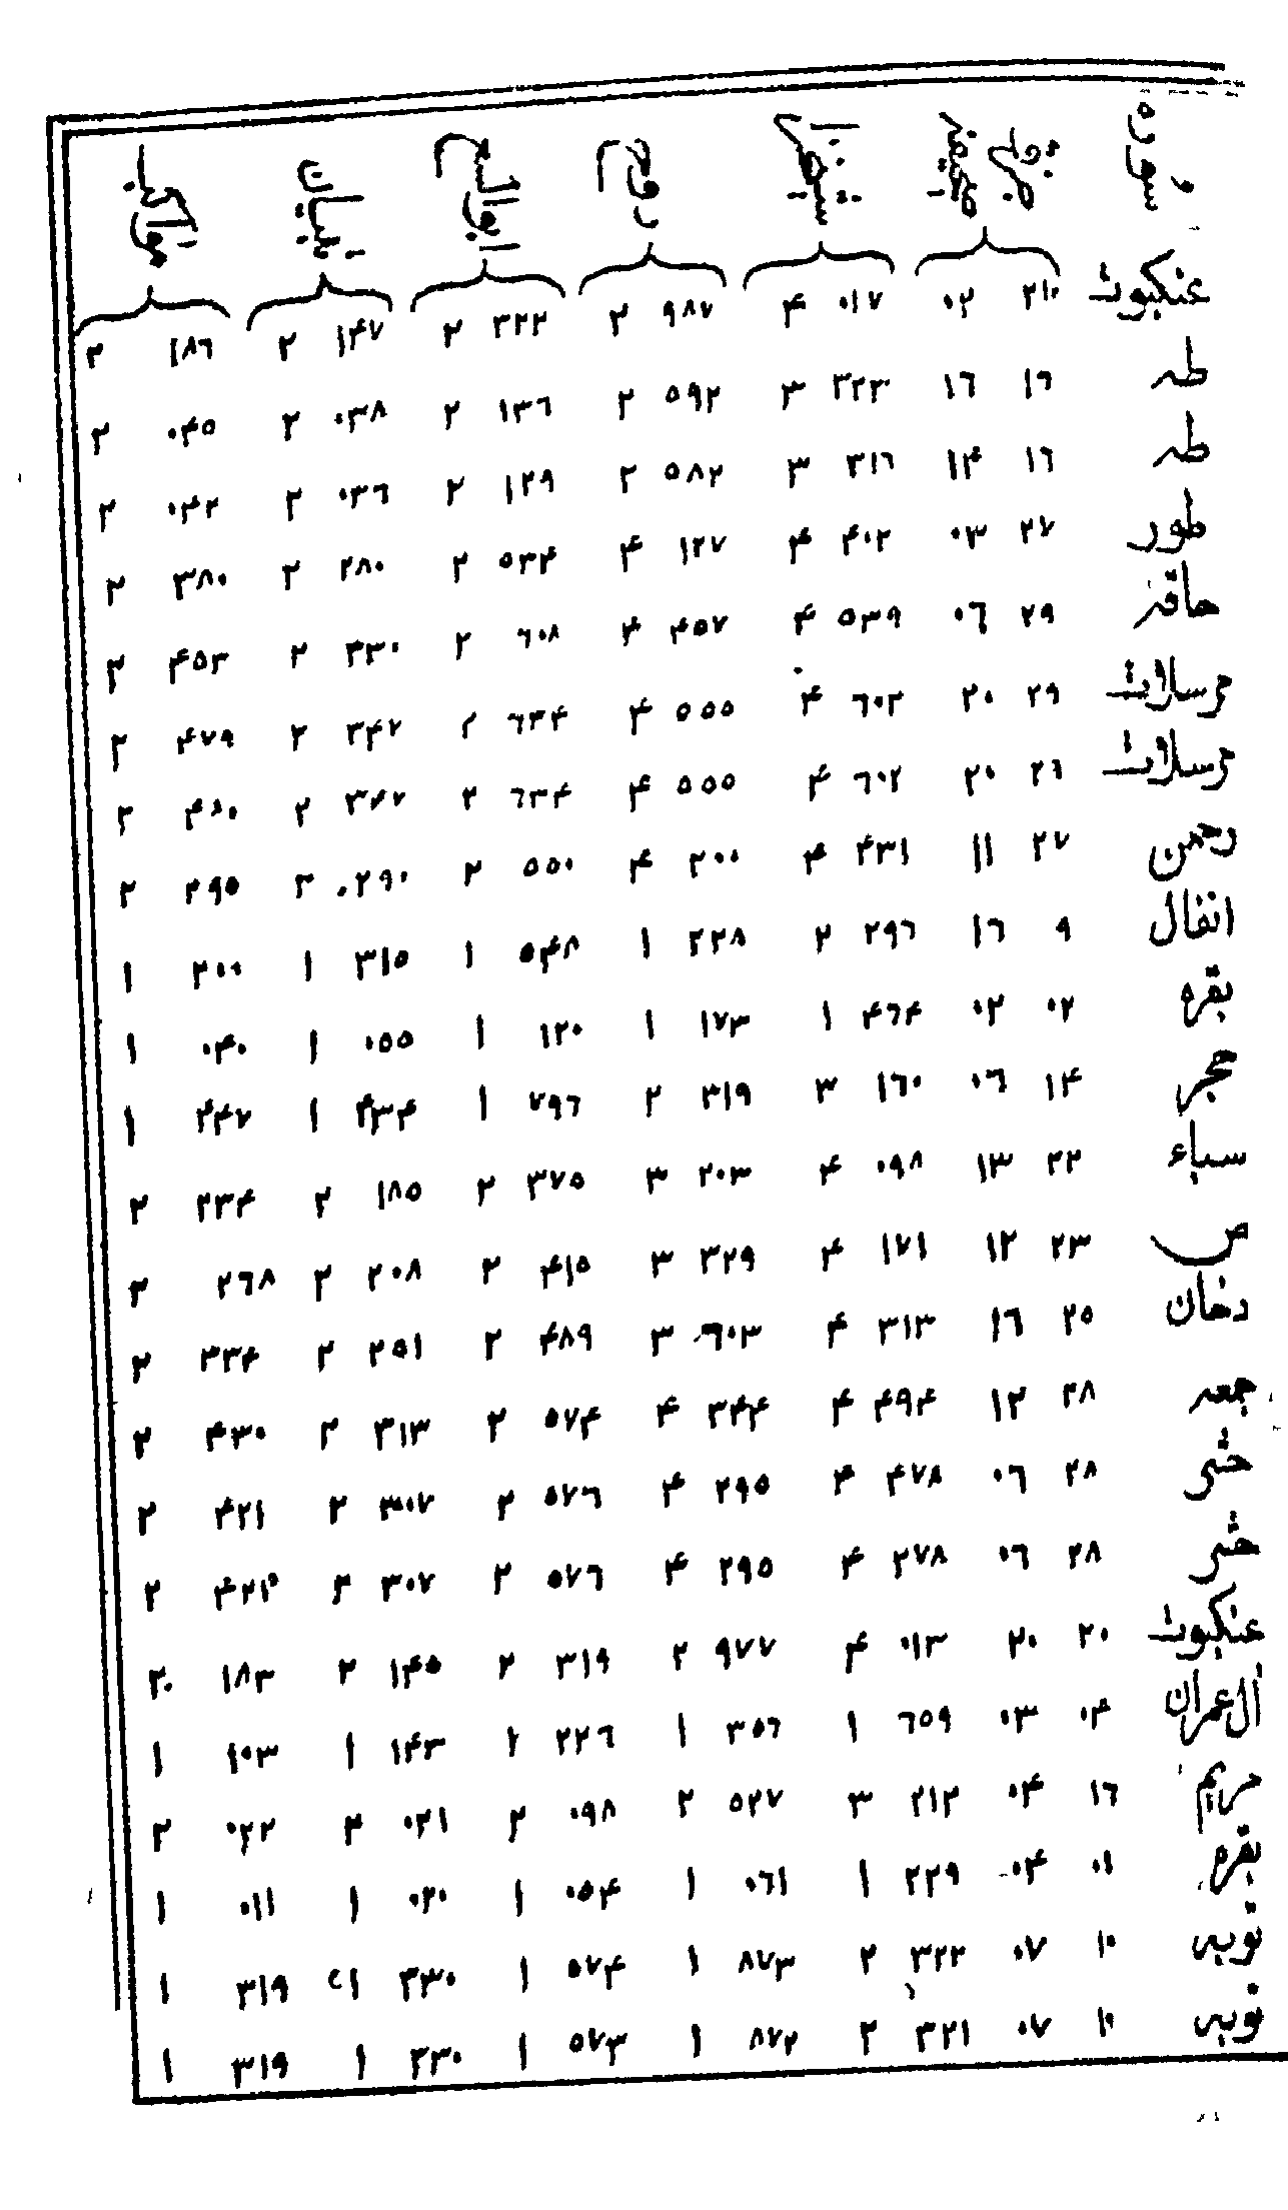 سوره
عنكبوت ۲۱ ۰۲ ۰۱۷ ۴ ۹۸۷ ۲ ۳۲۲ ۲ ۱۴۷ ۲ ۱۸٦ ۲
طه ۱٦ ۱٦ ۳۲۳ ۳ ۵۹۲ ۲ ۱۳٦ ۲ ۰۳۸ ۲ ۰۴۵ ۲
طه ۱٦ ۱۴ ۳۱٦ ۳ ۵۸۲ ۲ ۱۲۹ ۲ ۰۳٦ ۲ ۰۴۲ ۲
طور ۲۷ ۰۳ ۴۰۲ ۴ ۱۲۷ ۴ ۵۳۴ ۲ ۲۸۰ ۲ ۳۸۰ ۲
حاقه ۲۹ ۰٦ ۵۳۹ ۴ ۴۵۷ ۴ ٦۰۸ ۲ ۳۳۰ ۲ ۴۵۳ ۲
مرسلات ۲۹ ۲۰ ٦۰۲ ۴ ۵۵۵ ۴ ٦۳۴ ۲ ۳۴۷ ۲ ۴۷۹ ۲
مرسلات ۲٦ ۲۰ ٦۰۲ ۴ ۵۵۵ ۴ ٦۳۴ ۲ ۳۴۷ ۲ ۴۸۰ ۲
رحمن ۲۷ ۱۱ ۴۳۱ ۴ ۲۰۰ ۴ ۵۵۰ ۲ ۲۹۰ ۲ ۲۹۵ ۲
انفال ۹ ۱٦ ۲۹٦ ۲ ۲۲۸ ۱ ۵۴۸ ۱ ۳۱۵ ۱ ۳۰۰ ۱
بقره ۰۲ ۰۲ ۴٦۴ ۱ ۱۷۳ ۱ ۱۲۰ ۱ ۰۵۵ ۱ ۰۴۰ ۱
حجر ۱۴ ۰٦ ۱٦۰ ۳ ۳۱۹ ۲ ۷۹٦ ۱ ۴۳۴ ۱ ۴۴۷ ۱
سباء ۲۲ ۱۳ ۰۹۸ ۴ ۲۰۳ ۳ ۳۷۵ ۲ ۱۸۵ ۲ ۲۳۴ ۲
ص ۲۳ ۱۲ ۱۷۱ ۴ ۳۲۹ ۳ ۴۱۵ ۲ ۲۰۸ ۲ ۲٦۸ ۲
دخان ۲۵ ۱٦ ۳۱۳ ۴ ٦۰۳ ۳ ۴۸۹ ۲ ۲۵۱ ۲ ۳۳۴ ۲
جمعه ۲۸ ۱۲ ۴۹۴ ۴ ۳۴۴ ۴ ۵۷۴ ۲ ۳۱۳ ۲ ۴۳۰ ۲
حشر ۲۸ ۰٦ ۴۷۸ ۴ ۲۹۵ ۴ ۵۷٦ ۲ ۳۰۷ ۲ ۴۲۱ ۲
حشر ۲۸ ۰٦ ۲۷۸ ۴ ۲۹۵ ۴ ۵۷٦ ۲ ۳۰۷ ۲ ۴۲۱ ۲
عنكبوت ۲۰ ۲۰ ۰۱۳ ۴ ۹۷۷ ۲ ۳۱۹ ۲ ۱۴۵ ۲ ۱۸۳ ۲
أل عمران ۰۴ ۰۳ ٦۵۹ ۱ ۳۵٦ ۱ ۲۲٦ ۱ ۱۴۳ ۱ ۱۰۳ ۱
مريم ۱٦ ۰۴ ۲۱۲ ۳ ۵۲۷ ۲ ۰۹۸ ۲ ۰۲۱ ۲ ۰۲۲ ۲
بقره ۰۱ ۰۴ ۲۲۹ ۱ ۰٦۱ ۱ ۰۵۴ ۱ ۰۲۰ ۱ ۰۱۱ ۱
توبه ۱۰ ۰۷ ۳۲۲ ۲ ۸۷۳ ۱ ۵۷۴ ۱ ۳۳۰ ۱ ۳۱۹ ۱
توبه ۱۰ ۰۷ ۳۲۱ ۲ ۸۷۲ ۱ ۵۷۳ ۱ ۳۳۰ ۱ ۳۱۹ ۱